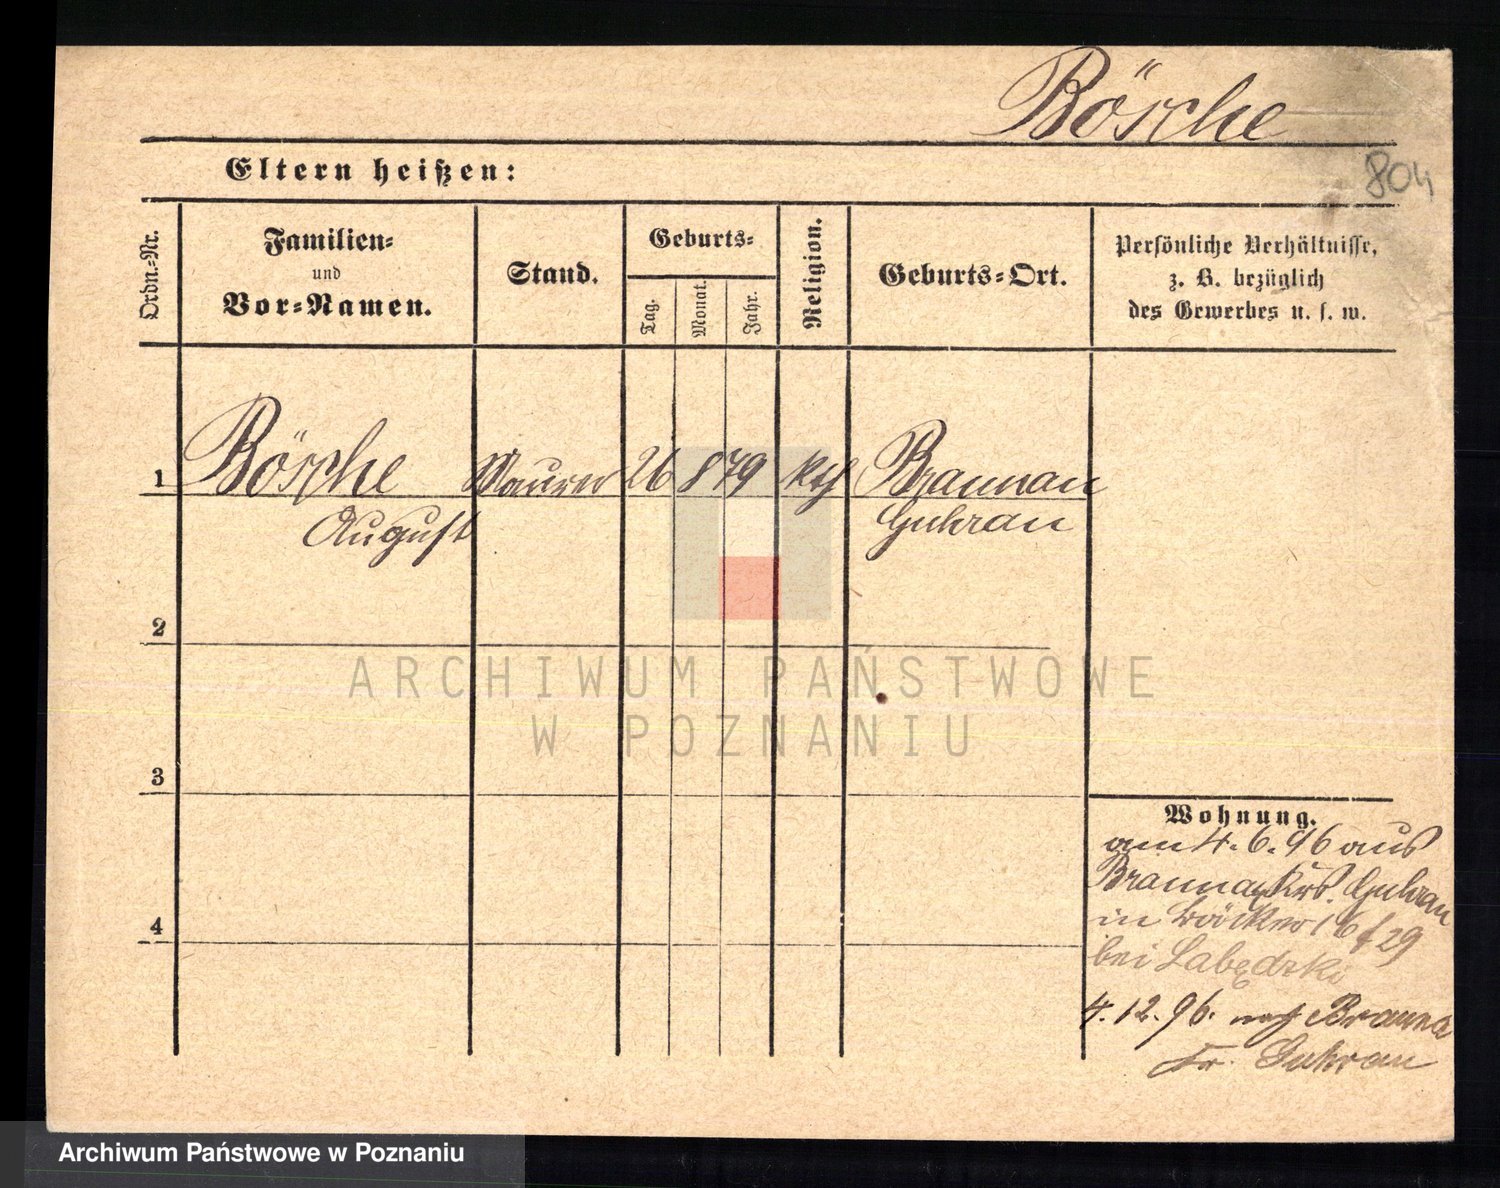 Bösche
804
Eltern heißen:
Ordn.-Nr.
Familien-
und
Vor-Namen.
Stand.
Geburts-
Tag.
Monat.
Jahr.
Religion.
Geburts-Ort.
Persönliche Verhältnisse,
z. B. bezüglich
des Gewerbes u. s. w.
1 Bösche Maurer 26 8 79 kth Braunau
August Guhrau
2
ARCHIWUM PAŃSTWOWE
W POZNANIU
3
Wohnung.
am 4.6.96 aus
Krs. Guhrau
in 16 f 29
bei Labędzki
4
4.12.96. nach
Kr. Guhrau
Archiwum Państwowe w Poznaniu